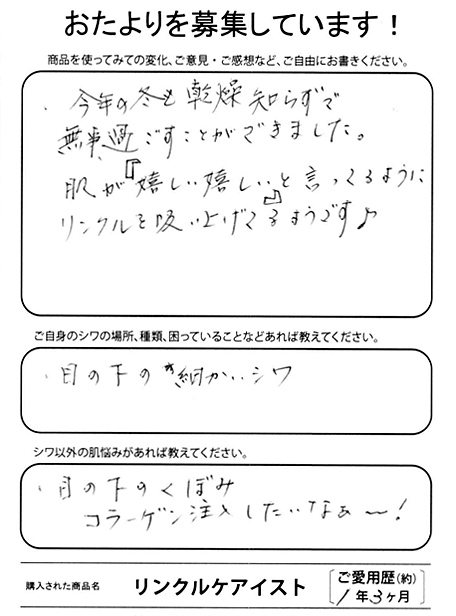 おたよりを募集しています！
商品を使ってみての変化、ご意見・ご感想など、ご自由にお書きください。
・今年の冬も乾燥知らずで
無事過ごすことができました。
肌が『嬉しい嬉しい』と言ってるように
リンクルを吸い上げてるようです♪
ご自身のシワの場所、種類、困っていることなどあれば教えてください。
・目の下の細かいシワ
シワ以外の肌悩みがあれば教えてください。
・目の下のくぼみ
コラーゲン注入したいなぁ〜！
購入された商品名 リンクルケアイスト ご愛用歴（約）
1年3ヶ月